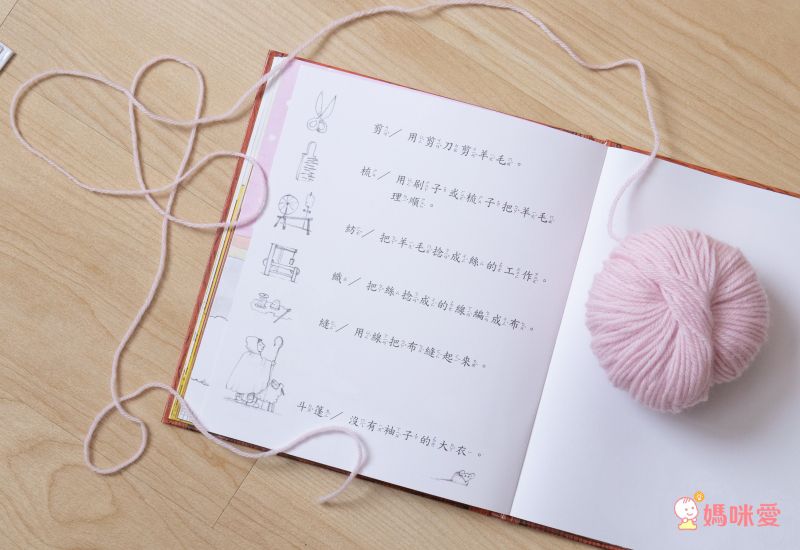 剪／用剪刀剪羊毛。
梳／用刷子或梳子把羊毛
理順。
紡／把羊毛捻成絲的工作。
織／把絲捻成的線編成布。
縫／用線把布縫起來。
斗蓬／沒有袖子的大衣。
媽咪愛